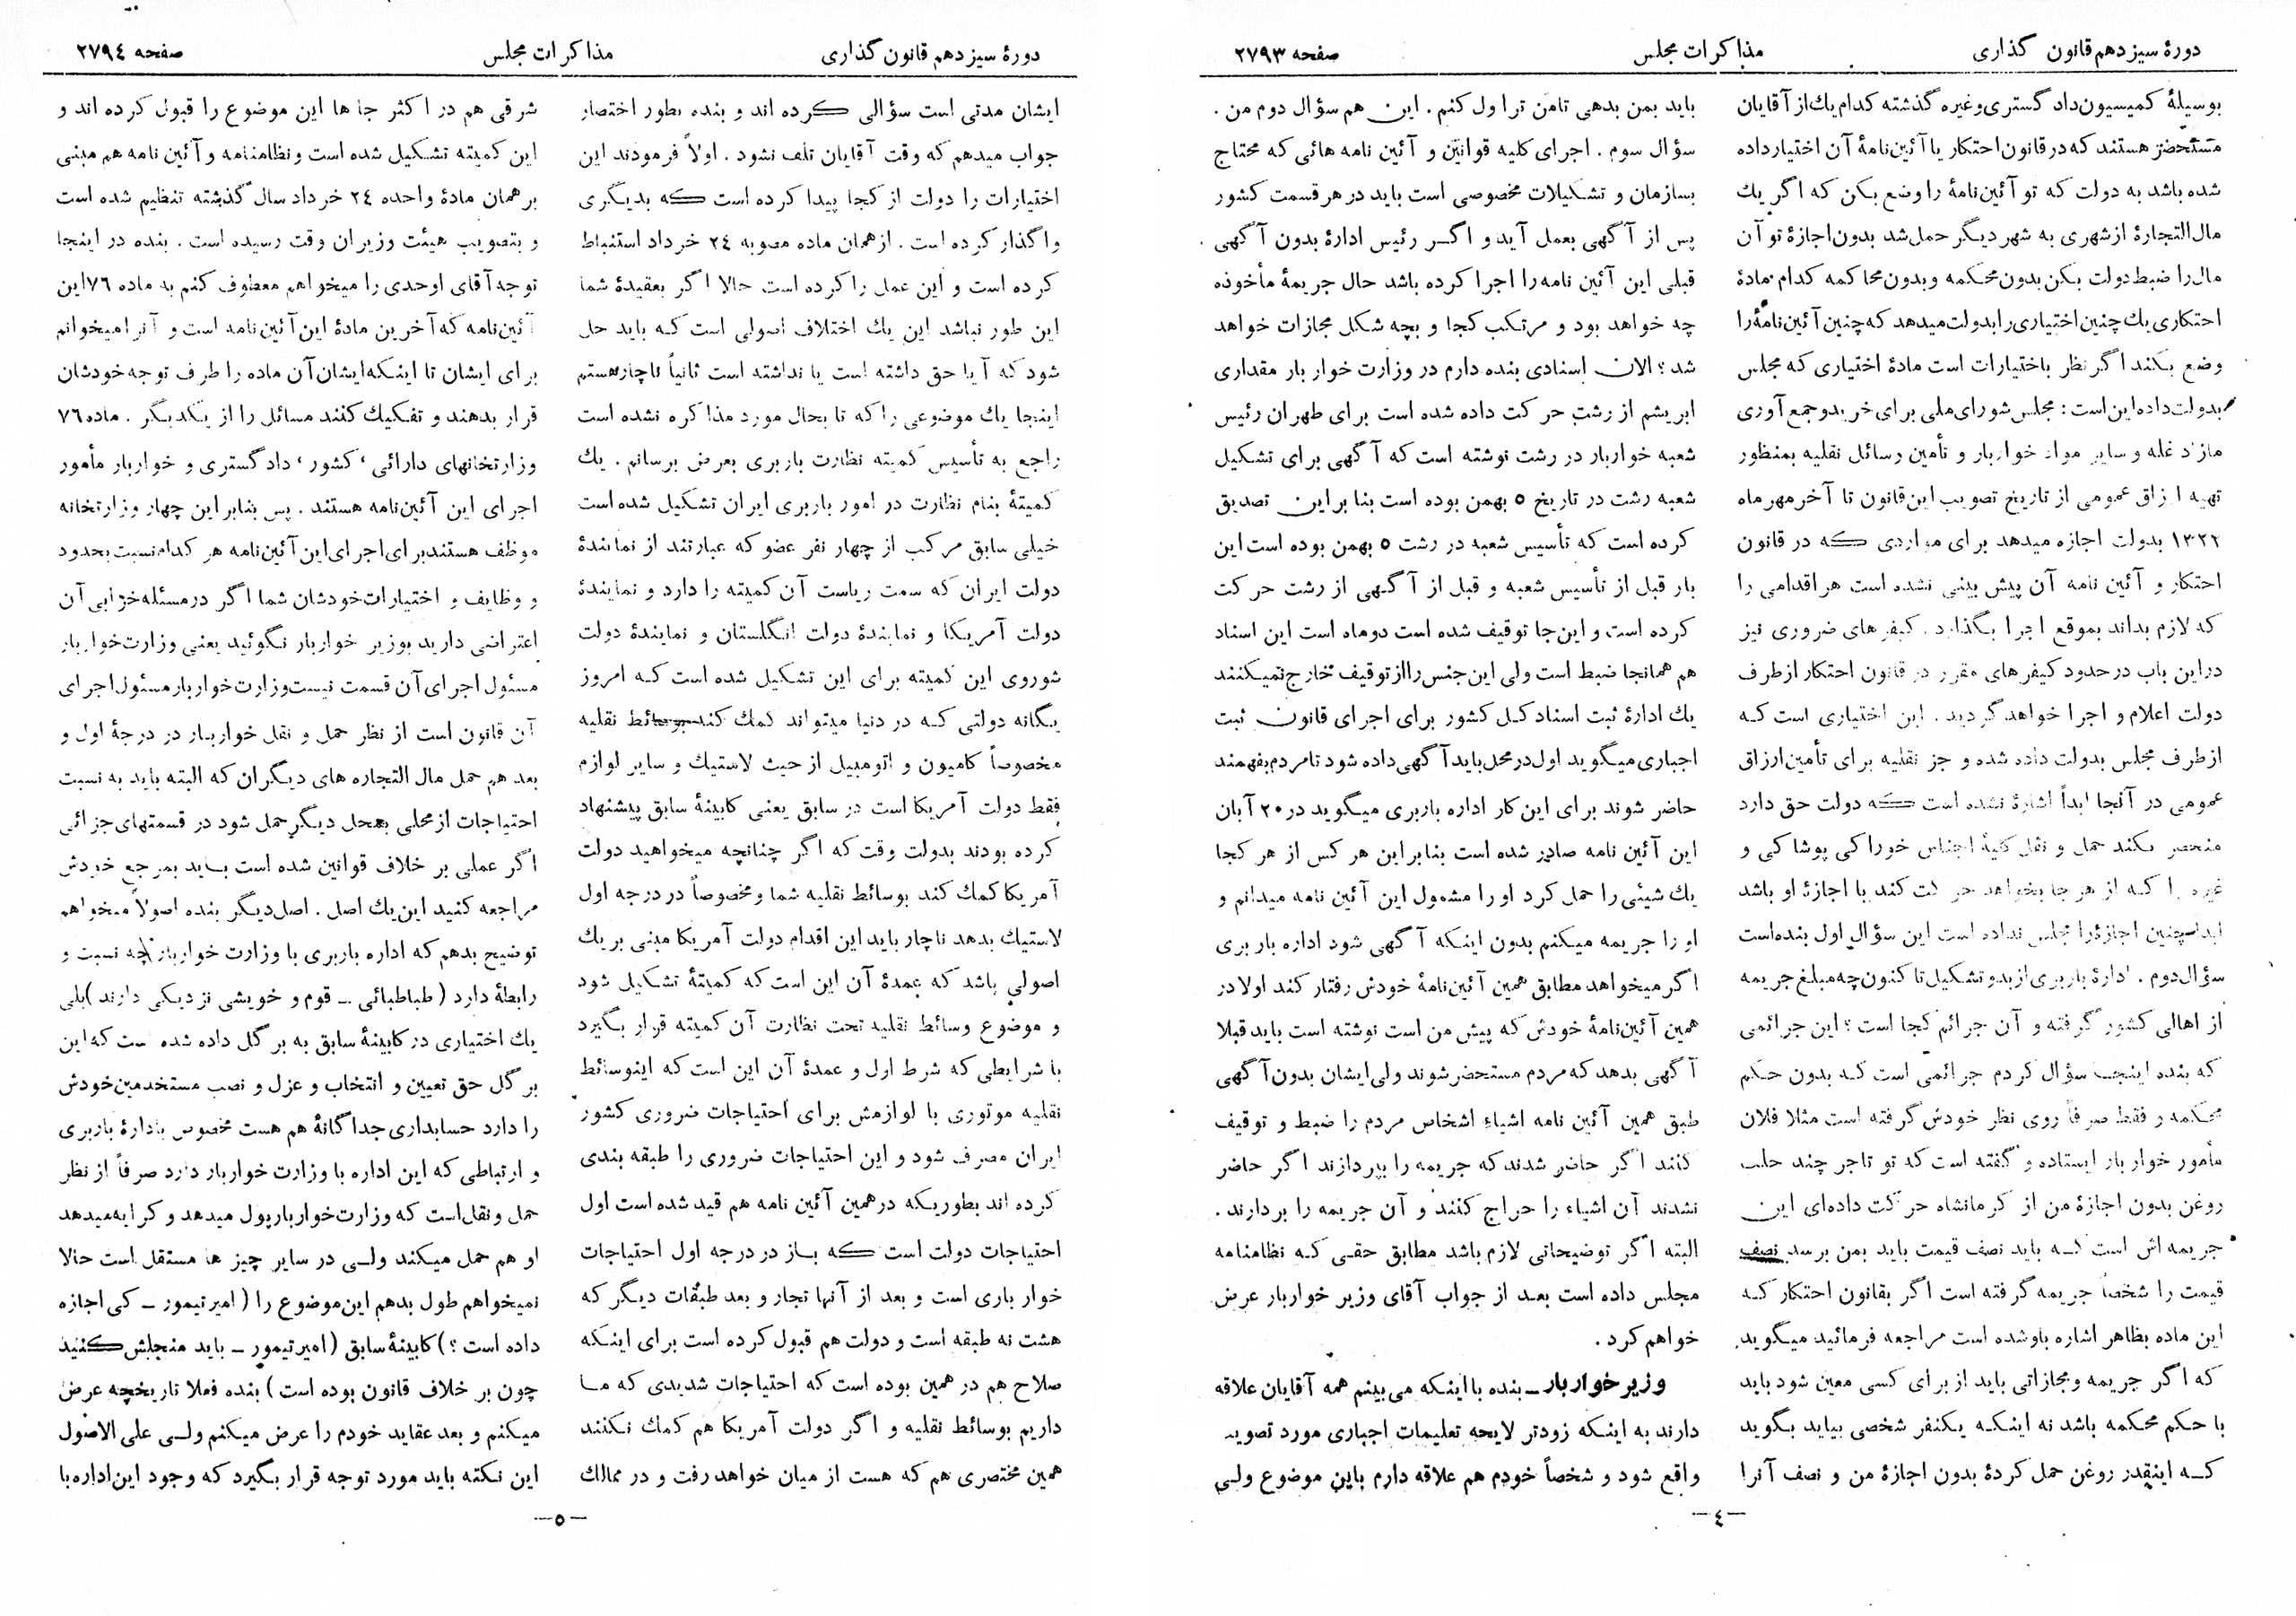 دورهٔ سیزدهم قانون گذاری
مذاکرات مجلس
صفحه ۲۷۹۳
بوسیلهٔ کمیسیون دادگستری وغیره گذشته کدام یك از آقایان
مستحضر هستند که در قانون احتکار یا آئین‌نامهٔ آن اختیار داده
شده باشد به دولت که تو آئین‌نامهٔ را وضع بکن که اگر یك
مال‌التجارهٔ از شهری به شهر دیگر حمل شد بدون اجازهٔ تو آن
مال را ضبط دولت بکن بدون محکمه و بدون محاکمه کدام مادهٔ
احتکاری یك چنین اختیاری را بدولت میدهد که چنین آئین‌نامهٔ را
وضع بکند اگر نظر باختیارات است مادهٔ اختیاری که مجلس
بدولت داده این است: مجلس شورای ملی برای خرید و جمع آوری
مازاد غله و سایر مواد خواربار و تأمین وسائل نقلیه بمنظور
تهیه ارزاق عمومی از تاریخ تصویب این قانون تا آخر مهرماه
۱۳۲۲ بدولت اجازه میدهد برای مواردی که در قانون
احتکار و آئین نامه آن پیش بینی نشده است هر اقدامی را
که لازم بداند بموقع اجرا بگذارد. کیفرهای ضروری نیز
در این باب در حدود کیفرهای مقرر در قانون احتکار از طرف
دولت اعلام و اجرا خواهد گردید. این اختیاری است که
از طرف مجلس بدولت داده شده و جز نقلیه برای تأمین ارزاق
عمومی در آنجا ابداً اشارهٔ نشده است که دولت حق دارد
منحصر بکند حمل و نقل کلیهٔ اجناس خوراکی پوشاکی و
غیره را که از هر جا بخواهد حرکت کند با اجازهٔ او باشد
ابداً چنین اجازهٔ را مجلس نداده است این سؤال اول بنده است
سؤال دوم. ادارهٔ باربری از بدو تشکیل تا کنون چه مبلغ جریمه
از اهالی کشور گرفته و آن جرائم کجا است؟ این جرائمی
که بنده اینجا سؤال کردم جرائمی است که بدون حکم
محکمه و فقط صرفاً روی نظر خودش گرفته است مثلا فلان
مأمور خواربار ایستاده و گفته است که تو تاجر چند حلب
روغن بدون اجازهٔ من از کرمانشاه حرکت داده‌ای این
جریمه اش است که باید نصف قیمت باید بمن برسد نصف
قیمت را شخصاً جریمه گرفته است اگر بقانون احتکار که
این ماده بظاهر اشاره باو شده است مراجعه فرمائید میگوید
که اگر جریمه و مجازاتی باید از برای کسی معین شود باید
با حکم محکمه باشد نه اینکه یکنفر شخصی بیاید بگوید
که اینقدر روغن حمل کردهٔ بدون اجازهٔ من و نصف آنرا
باید بمن بدهی تا من ترا ول کنم. این هم سؤال دوم من.
سؤال سوم. اجرای کلیه قوانین و آئین نامه هائی که محتاج
بسازمان و تشکیلات مخصوصی است باید در هر قسمت کشور
پس از آگهی بعمل آید و اگر رئیس ادارهٔ بدون آگهی
قبلی این آئین نامه را اجرا کرده باشد حال جریمهٔ مأخوذه
چه خواهد بود و مرتکب کجا و بچه شکل مجازات خواهد
شد؟ الان اسنادی بنده دارم در وزارت خوار بار مقداری
ابریشم از رشت حرکت داده شده است برای طهران رئیس
شعبه خواربار در رشت نوشته است که آگهی برای تشکیل
شعبه رشت در تاریخ ۵ بهمن بوده است بنا براین تصدیق
کرده است که تأسیس شعبه در رشت ۵ بهمن بوده است این
بار قبل از تأسیس شعبه و قبل از آگهی از رشت حرکت
کرده است و این‌جا توقیف شده است دو ماه است این اسناد
هم همانجا ضبط است ولی این جنس را از توقیف خارج نمیکنند
یك ادارهٔ ثبت اسناد کل کشور برای اجرای قانون ثبت
اجباری میگوید اول در محل باید آگهی داده شود تا مردم بفهمند
حاضر شوند برای این کار اداره باربری میگوید در ۲۰ آبان
این آئین نامه صادر شده است بنابراین هر کس از هر کجا
یك شیئی را حمل کرد او را مشمول این آئین نامه میدانم و
او را جریمه میکنم بدون اینکه آگهی شود اداره باربری
اگر میخواهد مطابق همین آئین‌نامهٔ خودش رفتار کند اولا در
همین آئین‌نامهٔ خودش که پیش من است نوشته است باید قبلا
آگهی بدهد که مردم مستحضر شوند ولی ایشان بدون آگهی
طبق همین آئین نامه اشیاء اشخاص مردم را ضبط و توقیف
کنند اگر حاضر شدند که جریمه را بپردازند اگر حاضر
نشدند آن اشیاء را حراج کنند و آن جریمه را بردارند.
البته اگر توضیحاتی لازم باشد مطابق حقی که نظامنامه
مجلس داده است بعد از جواب آقای وزیر خواربار عرض
خواهم کرد.
وزیر خواربار ـ بنده با اینکه می‌بینم همه آقایان علاقه
دارند به اینکه زودتر لایحه تعلیمات اجباری مورد تصویب
واقع شود و شخصاً خودم هم علاقه دارم باین موضوع ولی
—٤—
دورهٔ سیزدهم قانون گذاری
مذاکرات مجلس
صفحه ۲۷۹٤
ایشان مدتی است سؤالی کرده اند و بنده بطور اختصار
جواب میدهم که وقت آقایان تلف نشود. اولاً فرمودند این
اختیارات را دولت از کجا پیدا کرده است که بدیگری
واگذار کرده است. از همان ماده مصوبه ۲٤ خرداد استنباط
کرده است و این عمل را کرده است حالا اگر بعقیدهٔ شما
این طور نباشد این یك اختلاف اصولی است که باید حل
شود که آیا حق داشته است یا نداشته است ثانیاً ناچار هستم
اینجا یك موضوعی را که تا بحال مورد مذاکره نشده است
راجع به تأسیس کمیته نظارت باربری بعرض برسانم. یك
کمیتهٔ بنام نظارت در امور باربری ایران تشکیل شده است
خیلی سابق مرکب از چهار نفر عضو که عبارتند از نمایندهٔ
دولت ایران که سمت ریاست آن کمیته را دارد و نمایندهٔ
دولت آمریکا و نمایندهٔ دولت انگلستان و نمایندهٔ دولت
شوروی این کمیته برای این تشکیل شده است که امروز
یگانه دولتی که در دنیا میتواند کمك کند بوسائط نقلیه
مخصوصاً کامیون و اتومبیل از حیث لاستیك و سایر لوازم
فقط دولت آمریکا است در سابق یعنی کابینهٔ سابق پیشنهاد
کرده بودند بدولت وقت که اگر چنانچه میخواهید دولت
آمریکا کمك کند بوسائط نقلیه شما و مخصوصاً در درجه اول
لاستیك بدهد ناچار باید این اقدام دولت آمریکا مبنی بر یك
اصولی باشد که عمدهٔ آن این است که کمیتهٔ تشکیل شود
و موضوع وسائط نقلیه تحت نظارت آن کمیته قرار بگیرد
با شرایطی که شرط اول و عمدهٔ آن این است که اینوسائط
نقلیه موتوری با لوازمش برای احتیاجات ضروری کشور
ایران مصرف شود و این احتیاجات ضروری را طبقه بندی
کرده اند بطوریکه در همین آئین نامه هم قید شده است اول
احتیاجات دولت است که باز در درجه اول احتیاجات
خوار باری است و بعد از آنها تجار و بعد طبقات دیگر که
هشت نه طبقه است و دولت هم قبول کرده است برای اینکه
صلاح هم در همین بوده است که احتیاجات شدیدی که ما
داریم بوسائط نقلیه و اگر دولت آمریکا هم کمك نکنند
همین مختصری هم که هست از میان خواهد رفت و در ممالك
شرقی هم در اکثر جا ها این موضوع را قبول کرده اند و
این کمیته تشکیل شده است و نظامنامه و آئین نامه هم مبنی
بر همان مادهٔ واحده ۲٤ خرداد سال گذشته تنظیم شده است
و بتصویب هیئت وزیران وقت رسیده است. بنده در اینجا
توجه آقای اوحدی را میخواهم معطوف کنم به ماده ۷٦ این
آئین‌نامه که آخرین مادهٔ این آئین‌نامه است و آنرا میخوانم
برای ایشان تا اینکه ایشان آن ماده را طرف توجه خودشان
قرار بدهند و تفکیك کنند مسائل را از یکدیگر. ماده ۷٦
وزارتخانهای دارائی، کشور، دادگستری و خواربار مأمور
اجرای این آئین‌نامه هستند. پس بنابراین چهار وزارتخانه
موظف هستند برای اجرای این آئین‌نامه هر کدام نسبت بحدود
و وظایف و اختیارات خودشان شما اگر در مسئله خرابی آن
اعتراضی دارید بوزیر خواربار نگوئید یعنی وزارت خواربار
مسئول اجرای آن قسمت نیست وزارت خواربار مسئول اجرای
آن قانون است از نظر حمل و نقل خواربار در درجهٔ اول و
بعد هم حمل مال التجاره های دیگران که البته باید به نسبت
احتیاجات از محلی بمحل دیگر حمل شود در قسمتهای جزائی
اگر عملی بر خلاف قوانین شده است باید بمرجع خودش
مراجعه کنید این یك اصل. اصل دیگر بنده اصولاً میخواهم
توضیح بدهم که اداره باربری با وزارت خواربار چه نسبت و
رابطهٔ دارد (طباطبائی ـ قوم و خویشی نزدیکی دارند) بلی
یك اختیاری در کابینهٔ سابق به بر گل داده شده است که این
بر گل حق تعیین و انتخاب و عزل و نصب مستخدمین خودش
را دارد حسابداری جداگانهٔ هم هست مخصوص بادارهٔ باربری
و ارتباطی که این اداره با وزارت خواربار دارد صرفاً از نظر
حمل و نقل است که وزارت خواربار پول میدهد و کرایه میدهد
او هم حمل میکند ولی در سایر چیز ها مستقل است حالا
نمیخواهم طول بدهم این موضوع را (امیر تیمور ـ کی اجازه
داده است؟) کابینهٔ سابق (امیر تیمور ـ باید منحلش کنید
چون بر خلاف قانون بوده است) بنده فعلا تاریخچه عرض
میکنم و بعد عقاید خودم را عرض میکنم ولی علی الاصول
این نکته باید مورد توجه قرار بگیرد که وجود این اداره با
—٥—